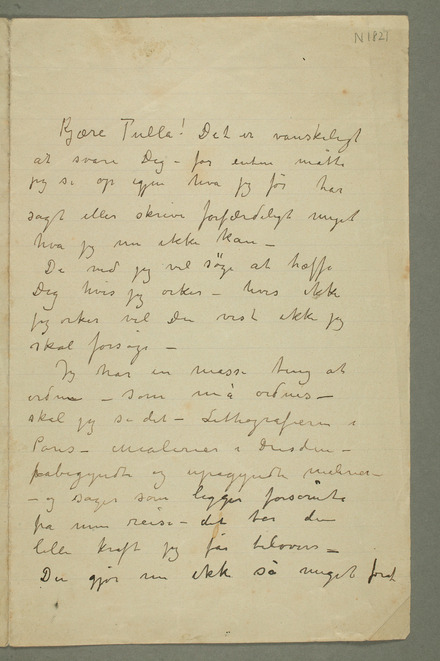 N 1821
Kjære Tulla! Det er vanskeligt
at svare Dig – for enten måtte
jeg si op igjen hva jeg før har
sagt eller skrive forfærdeligt meget
hva jeg nu ikke kan –
Du ved jeg vil søge at træffe
Dig hvis jeg orker – hvis ikke
jeg orker vil Du vist ikke jeg
skal forsøge –
Jeg har en masse ting at
ordne – som må ordnes –
skal jeg si det – Lithografierne i
Paris – malerier i Dresden –
påbegyndte og
– og sager som ligger forsømte
fra min reise – det tar den
lille kraft jeg får tilovers –
Du gjør nu ikke så meget forat